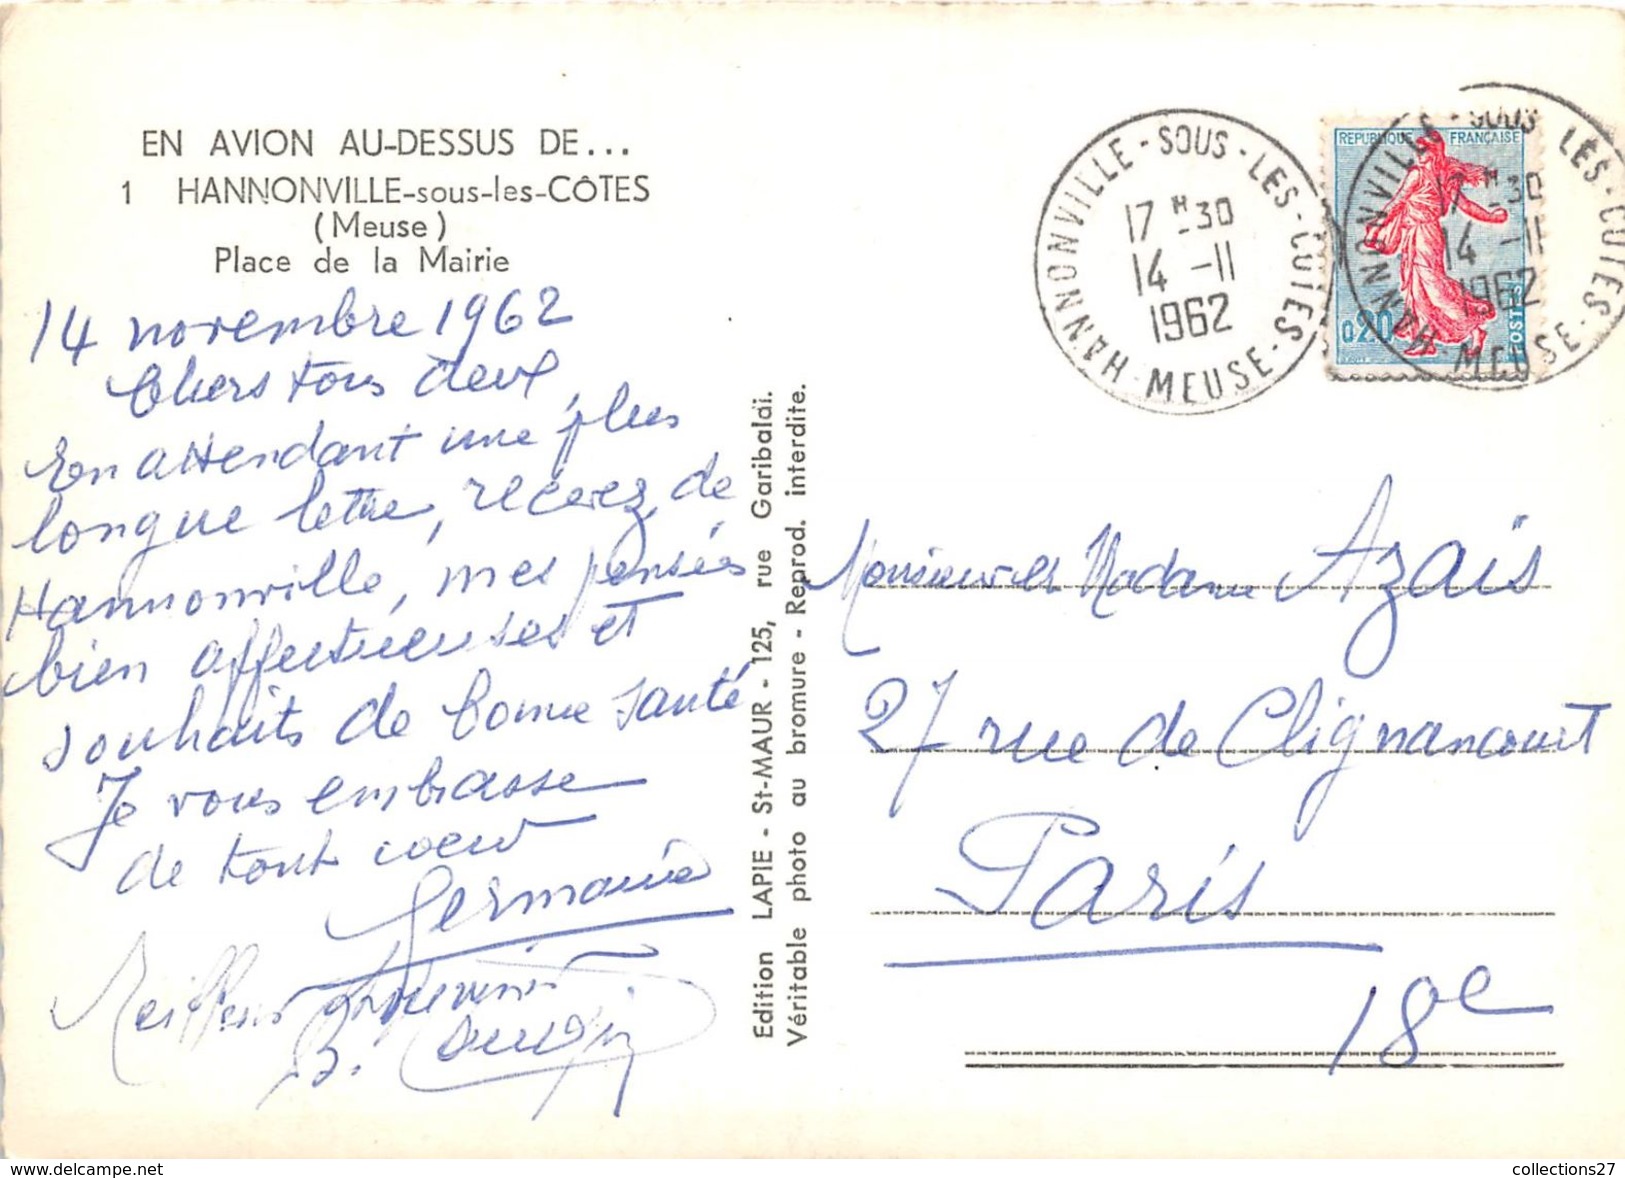 EN AVION AU-DESSUS DE...
1 HANNONVILLE-sous-les-CÔTES
(Meuse)
Place de la Mairie
14 novembre 1962
Chers tous deux,
En attendant une plus
longue lettre, recevez, de
Hannonville, mes pensées
bien affectueuses et
souhaits de bonne santé
Je vous embrasse
de tout coeur
Germaine
Meilleur souvenir
Edition LAPIE - St-MAUR - 125, rue Garibaldi.
Véritable photo au bromure - Reprod. interdite.
HANNONVILLE-SOUS-LES-COTES
17 H 30
14 -11
1962
MEUSE
REPUBLIQUE FRANÇAISE
0,20
POSTES
HANNONVILLE-SOUS-LES-COTES
17 H 30
14 -11
1962
MEUSE
Monsieur et Madame Azaïs
27 rue de Clignancourt
Paris
18e
www.delcampe.net
collections27